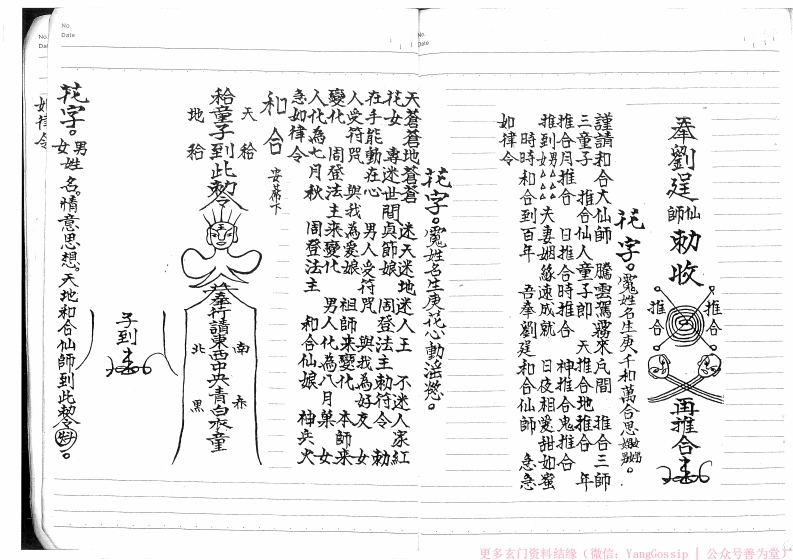 奉劉迋仙師勅收
推合
推合
再推合
花字。魂姓名生庚千和萬合思
謹請和合大仙師　騰雲駕霧來凡間　推合三師
三童子　推合仙人童子郎　天推合地推合　年
推合月推合　日推合時推合　神推合鬼推合
推到女△△△夫妻姻緣速成就　日夜相愛甜如蜜
時時和合到百年　吾奉劉迋和合仙師　急急
如律令
花字。魂姓名生庚花心動淫慾。
天蒼蒼地蒼蒼　迷天迷地迷人王　不迷人家紅
花女　專迷世間貞節娘　周登法主勅符令　勅
在手能動在心　男人受符咒　與我為好友　女
人受符咒　與我為愛娘　祖師來變化　本師來
變化　周登法主來變化　男人化為八月菓　女
人化為七月秋　周登法主　和合仙娘　神兵火
急如律令
和合　安蓆下
天給
給童子到此勅令
地給
奉行請東西中央青白衣童
南赤
北黑
子到
花字。男女姓名。情意思想。天地和合仙師到此勅令。
如律令
No.
Date
No.
Date
No.
Date
更多玄门资料结缘（微信：YangGossip | 公众号善为堂）